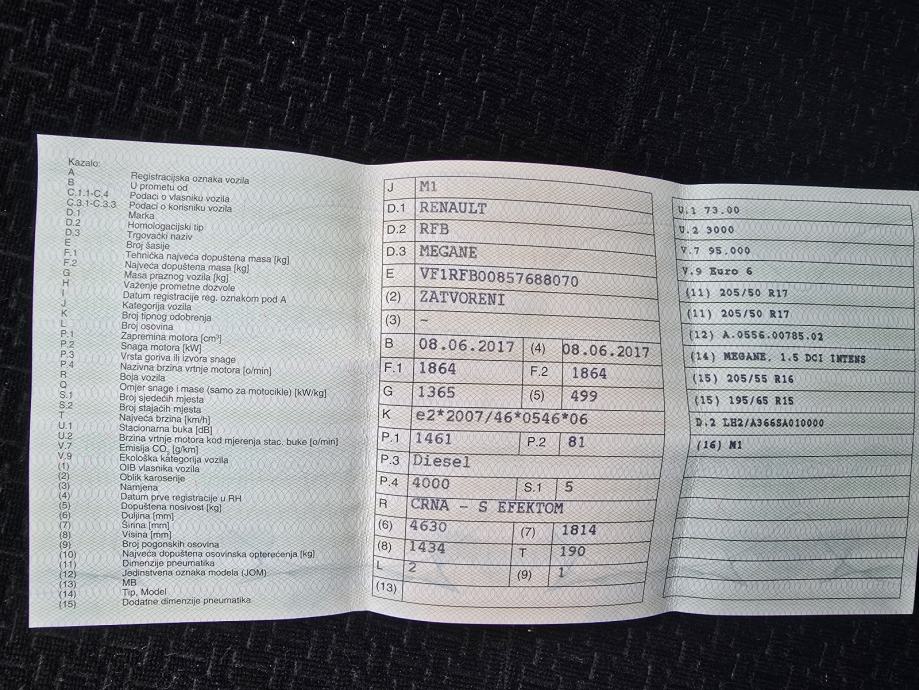 Kazalo:
A Registracijska oznaka vozila
B U prometu od
C.1.1-C.4 Podaci o vlasniku vozila
C.3.1-C.3.3 Podaci o korisniku vozila
D.1 Marka
D.2 Homologacijski tip
D.3 Trgovački naziv
E Broj šasije
F.1 Tehnička najveća dopuštena masa [kg]
F.2 Najveća dopuštena masa [kg]
G Masa praznog vozila [kg]
H Važenje prometne dozvole
I Datum registracije reg. oznakom pod A
J Kategorija vozila
K Broj tipnog odobrenja
L Broj osovina
P.1 Zapremina motora [cm³]
P.2 Snaga motora [kW]
P.3 Vrsta goriva ili izvora snage
P.4 Nazivna brzina vrtnje motora [o/min]
R Boja vozila
Q Omjer snage i mase (samo za motocikle) [kW/kg]
S.1 Broj sjedećih mjesta
S.2 Broj stajaćih mjesta
T Najveća brzina [km/h]
U.1 Stacionarna buka [dB]
U.2 Brzina vrtnje motora kod mjerenja stac. buke [o/min]
V.7 Emisija CO₂ [g/km]
V.9 Ekološka kategorija vozila
(1) OIB vlasnika vozila
(2) Oblik karoserije
(3) Namjena
(4) Datum prve registracije u RH
(5) Dopuštena nosivost [kg]
(6) Duljina [mm]
(7) Širina [mm]
(8) Visina [mm]
(9) Broj pogonskih osovina
(10) Najveća dopuštena osovinska opterećenja [kg]
(11) Dimenzije pneumatika
(12) Jedinstvena oznaka modela (JOM)
(13) MB
(14) Tip, Model
(15) Dodatne dimenzije pneumatika
J M1
D.1 RENAULT
D.2 RFB
D.3 MEGANE
E VF1RFB00857688070
(2) ZATVORENI
(3) –
B 08.06.2017 (4) 08.06.2017
F.1 1864 F.2 1864
G 1365 (5) 499
K e2*2007/46*0546*06
P.1 1461 P.2 81
P.3 Diesel
P.4 4000 S.1 5
R CRNA - S EFEKTOM
(6) 4630 (7) 1814
(8) 1434 T 190
L 2 (9) 1
(13)
U.1 73.00
U.2 3000
V.7 95.000
V.9 Euro 6
(11) 205/50 R17
(11) 205/50 R17
(12) A.0556.00785.02
(14) MEGANE, 1.5 DCI INTENS
(15) 205/55 R16
(15) 195/65 R15
D.2 LH2/A366SA010000
(16) M1